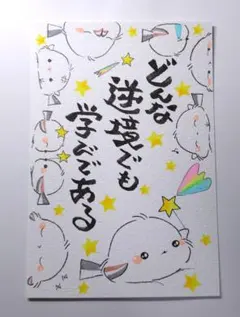 どんな
逆境でも
学びである
z z z